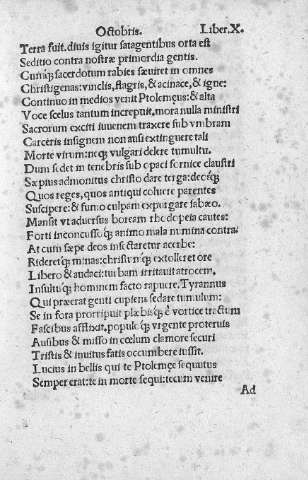 Octobris. Liber.X.
Terra fuit. diuis igitur satagentibus orta est
Seditio contra nostræ primordia gentis.
Cumq̃ sacerdotum rabies sæuiret in omnes
Christigenas: vinclis, flagris, & acinace, & igne:
Continuo in medios venit Ptolemęus: & alta
Voce scelus tantum increpuit, mora nulla ministri
Sacrorum exciti iuuenem traxere sub vmbram
Carceris insignem non ausi extinguere tali
Morte virum: neq̃ vulgari delere tumultu.
Dum sedet in tenebris sub opaci fornice claustri
Sæpius admonitus christo dare terga: deosq̃
Quos reges, quos antiqui coluere parentes
Suscipere: & fumo culpam expurgare sabæo.
Mansit vt aduersus boream rhodopeia cautes:
Forti inconcussoq̃ animo mala numina contra
At cum sæpe deos insectaretur acerbe:
Rideretq̃ minas: christumq̃ extolleret ore
Libero & audaci: turbam irritauit atrocem,
Insultuq̃ hominem facto rapuere. Tyrannus
Qui præerat genti cupiens sedare tumultum:
Se in fora prorripuit plæbisq̃ e vortice tractum
Fascibus afflixit, populoq̃ vrgente proteruis
Ausibus & misso in cœlum clamore securi
Tristis & inuitus fatis occumbere iussit.
Lucius in bellis qui te Ptolemęe sequutus
Semper erat: te in morte sequi: tecum venire
Ad